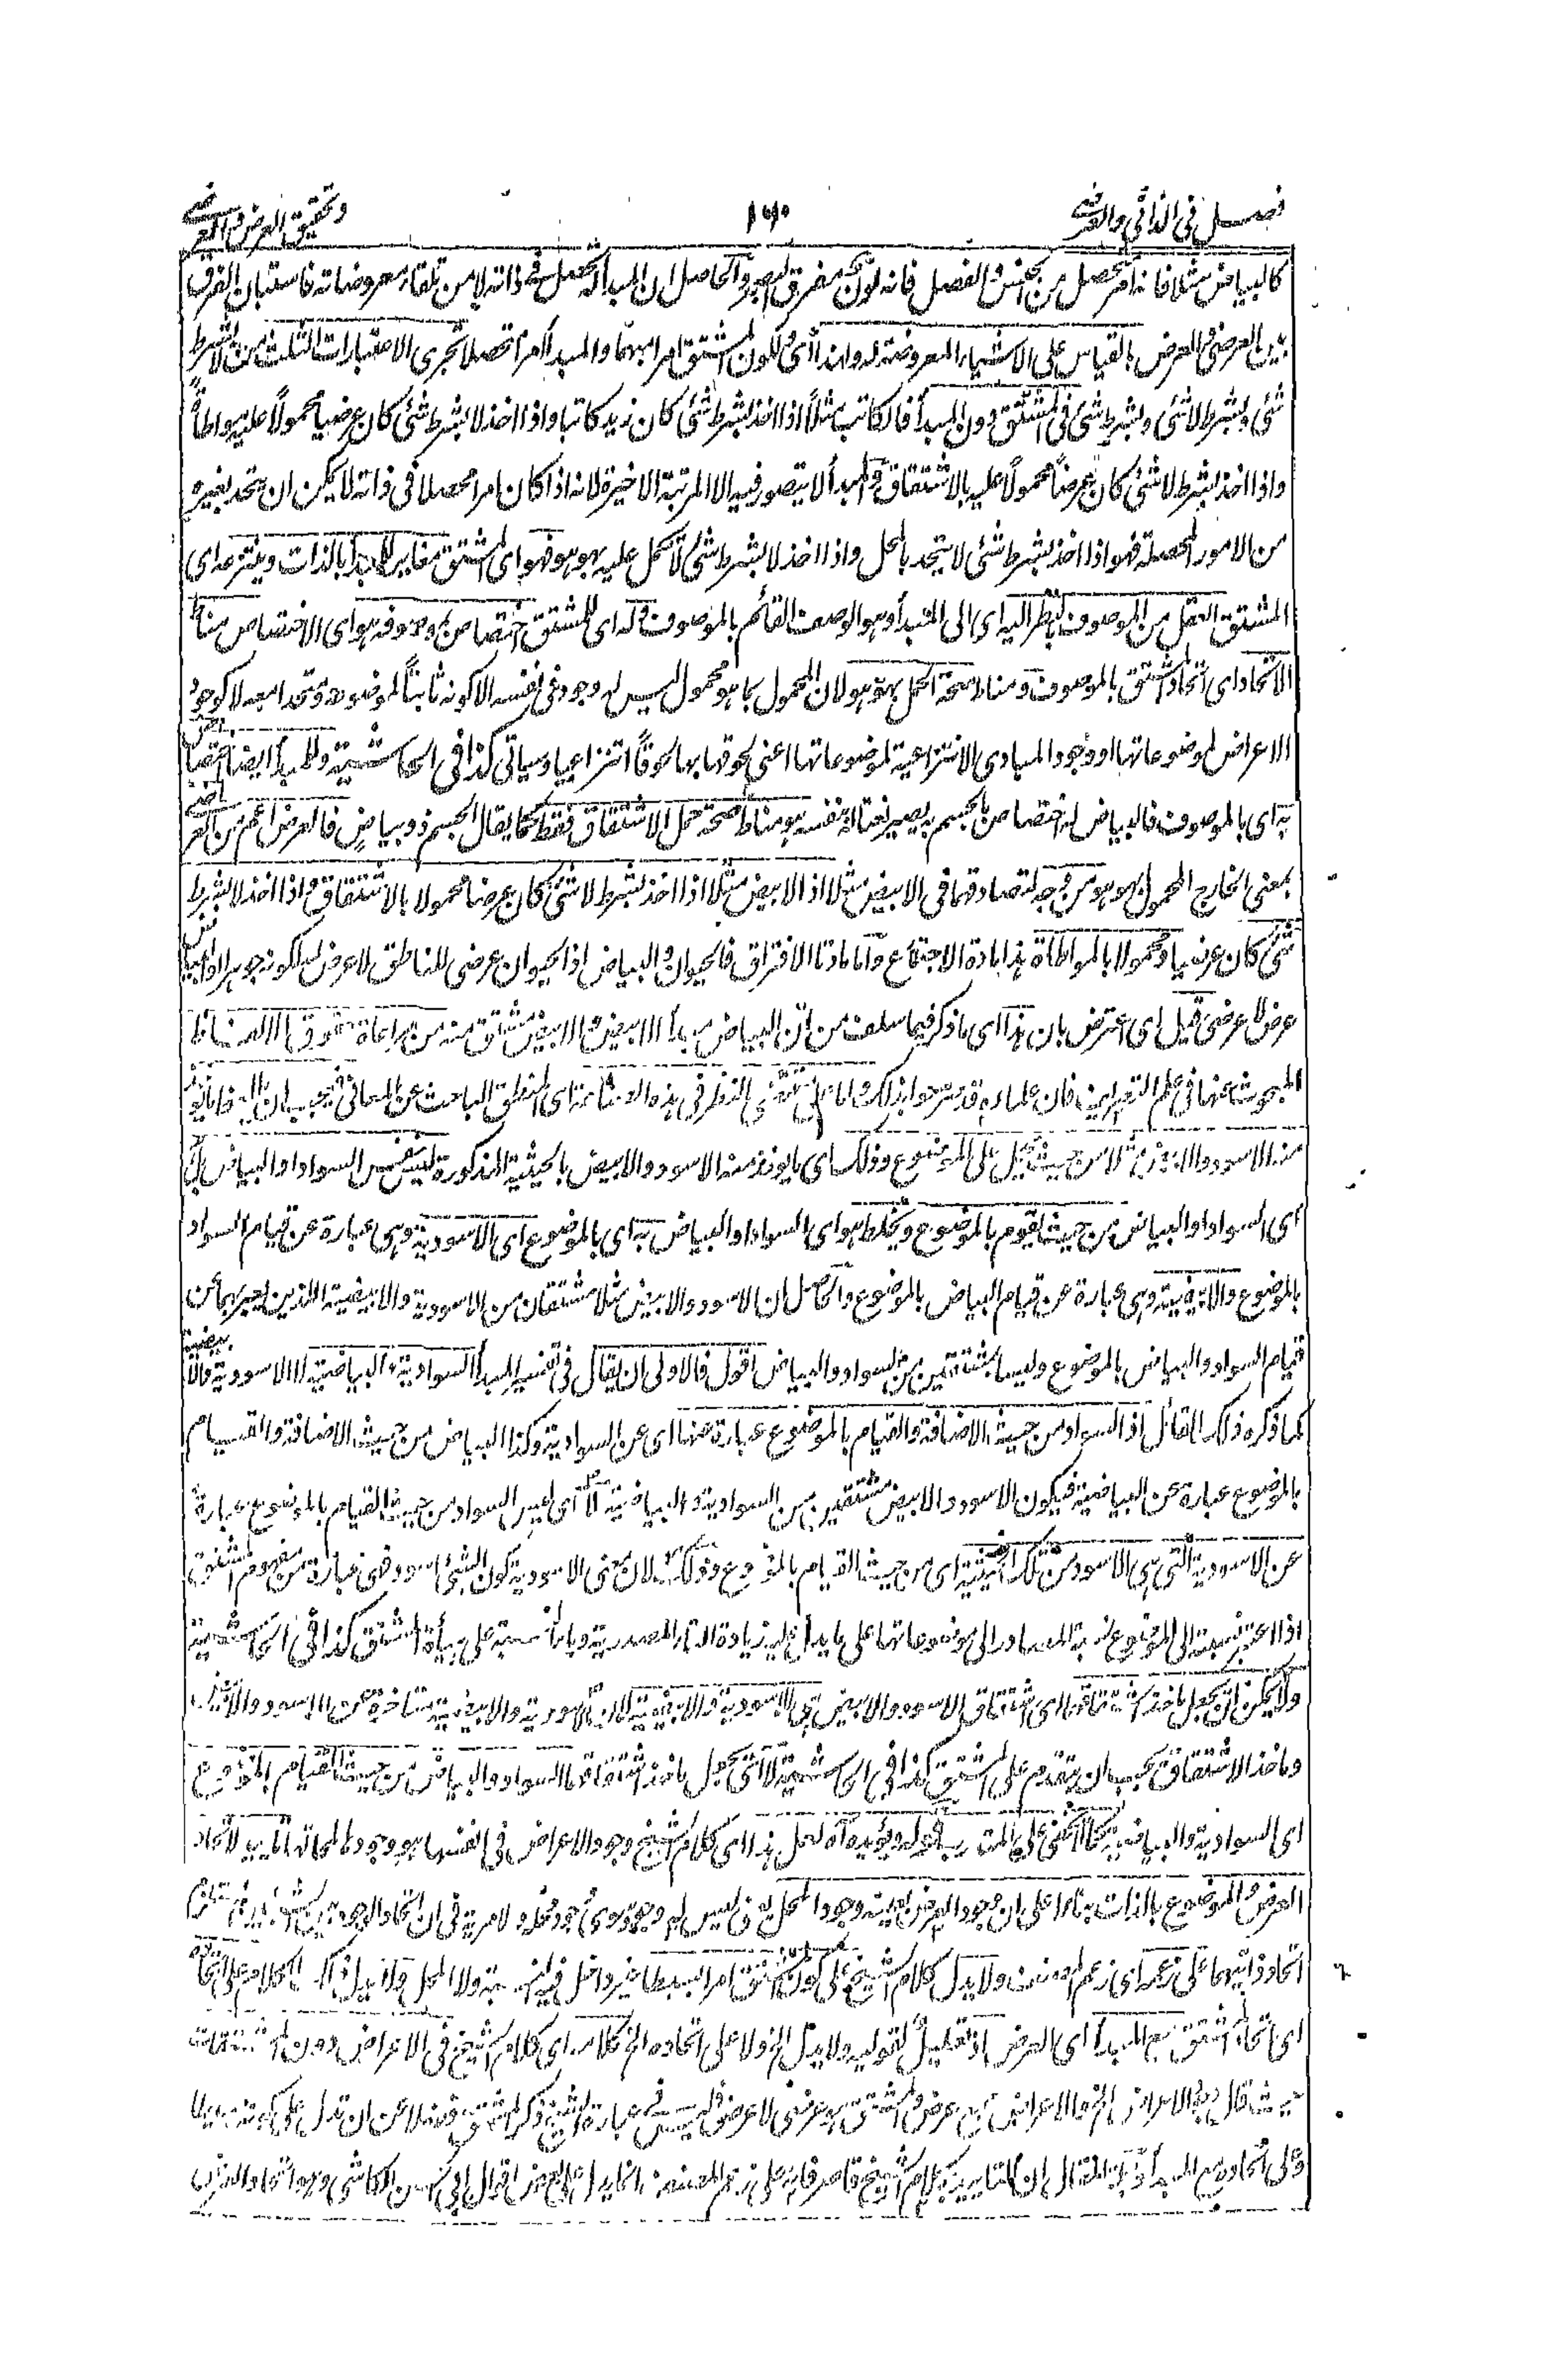 فصل في الذاتي والعرضي
وتحقيق العرض والعرضي
كالبياض مثلا فانه امر تحصل من الجنس والفصل فانه لون مفرق للبصر والحاصل ان المبدأ له تحصل في ذاته لا من تلقاء معروضاته فاستبان الفرق
بين العرضي والعرض بالقياس على الاشياء المعروضة له ولهذا أي لكون المشتق امرا مبهما والمبدأ امرا تحصلا تجري الاعتبارات الثلث من لا بشرط
شئ وبشرط لا شئ وبشرط شئ في المشتق دون المبدأ فالكاتب مثلاً اذا اخذ بشرط شئ كان زيد كاتبا واذا اخذ لا بشرط شئ كان عرضيا محمولاً عليه مواطاةً
واذا اخذ بشرط لا شئ كان عرضاً محمولاً عليه بالاشتقاق وفي المبدأ لا يتصور فيه الا المرتبة الاخيرة لانه اذا كان امرا محصلا في ذاته لا يمكن ان يتحد بغيره
من الامور المحصلة فهو اذا اخذ بشرط شئ لا يتحد بالمحل واذا اخذ لا بشرط شئ لا تحمل عليه بهو هو فهو اي المشتق مغاير للمبدأ بالذات وينتزعه اي
المشتق العقل من الموصوف بالنظر اليه اي الى المبدأ وهو الوصف القائم بالموصوف وله اي للمشتق اختصاص بموصوفه هو اي الاختصاص مناط
الاتحاد اي اتحاد المشتق بالموصوف ومناط صحة الحمل بهو هو لان المحمول بما هو محمول ليس له وجود في نفسه الا كونه ثابتاً لموضوعه ومتحدا معه لا كوجود
الاعراض لموضوعاتها او وجود المبادي الانتزاعية لموضوعاتها اعني لحوقها بها لحوقاً انتزاعيا وسياتي كذا في الحاشية وللمبدأ ايضا اختصاص
به اي بالموصوف فالبياض له اختصاص بالجسم به يصير نعتا له بنفسه هو مناط صحة حمل الاشتقاق فقط كما يقال الجسم ذو بياضٍ فالعرض اعم من العرضي
بمعنى الخارج المحمول بهو هو من وجه لتصادقهما في الابيض مثلا اذ الابيض مثلا اذا اخذ بشرط لا شئ كان عرضا محمولا بالاشتقاق واذا اخذ لا بشرط
شئ كان عرضيا ومحمولا بالمواطاة هذا مادة الاجتماع واما مادتا الافتراق فالحيوان والبياض اذ الحيوان عرضي للناطق لا عرض له لكونه جوهرا والبياض
عرض لا عرضي قيل اي اعترض بان هذا اي ما ذكر فيما سلف من ان البياض مبدأ الابيض والابيض مشتق منه من مراعاة حقوق الالفاظ
المبحوث عنها في علم التصريف فان علماءه قد صرحوا بذلك واما على مقتضى النظر في هذه الصناعة اي المنطق الباحث عن المعاني يجب ان
منه الاسود والابيض مثلا من حيث يحمل على الموضوع وذلك اي ما يوخذ منه الاسود والابيض بالحيثية المذكورة ليس نفس السواد او البياض بل
اي السواد او البياض من حيث يقوم بالموضوع ويختلط هو اي السواد او البياض به اي بالموضوع اي الاسودية وهي عبارة عن قيام السواد
بالموضوع والابيضية وهي عبارة عن قيام البياض بالموضوع والحاصل ان الاسود والابيض مثلا مشتقان من الاسودية والابيضية اللذين يعبر بهما عن
قيام السواد والبياض بالموضوع وليسا بمشتقين من السواد والبياض اقول فالاولى ان يقال في تفسير المبدأ السوادية والبياضية لا الاسودية والابيضية
كما ذكره ذلك القائل اذ السواد من حيث الاضافة والقيام بالموضوع عبارة عنها اي عن السوادية وكذا البياض من حيث الاضافة والقيام
بالموضوع عبارة عن البياضية فيكون الاسود والابيض مشتقين من السوادية والبياضية لا اي ليس السواد من حيث القيام بالموضوع عبارة
عن الاسودية التي هي الاسود من تلك الحيثية اي من حيث القيام بالموضوع وذلك لان معنى الاسودية كون الشئ اسود فهي عبارة عن مفهوم المشتق
اذا اعتبر نسبته الى الموضوع نسبة المصادر الى موضوعاتها على ما يدل عليه زيادة التاء المصدرية وياء النسبة على هيأة المشتق كذا في الحاشية
ولا يمكن ان يجعل ماخذ اشتقاقهما اي اشتقاق الاسود والابيض هي الاسودية والابيضية لان الاسودية والابيضية متاخرة عن الاسود والابيض
وماخذ الاشتقاق يجب ان يتقدم على المشتق كذا في الحاشية لا حتى يجعل ماخذ اشتقاقهما السواد والبياض من حيث القيام بالموضوع
اي السوادية والبياضية كما لا يخفى على المتدرب قوله ويؤيده آه لعل هذا اي كلام الشيخ وجود الاعراض في انفسها هو وجودها لمحالها تاييد لاتحاد
العرض والموضوع بالذات بناءا على ان وجود العرض بعينه وجود المحل ليس له وجود سوى وجود محله ولا مرية في ان اتحاد الوجود يستلزم
اتحاد ذاتيهما على زعمه اي زعم المصنف ولا يدل كلام الشيخ على كون المشتق امرا بسيطا غير داخل فيه النسبة ولا المحل ولا يدل ذلك الكلام على اتحاده
اي اتحاد المشتق مع المبدأ اي العرض اذ تعليلٌ لقوله ولا يدل الخ ولا على اتحاده الخ كلامه اي كلام الشيخ في الاعراض دون المشتقات
حيث قال وجود الاعراض الخ والاعراض جمع عرض والمشتق هو عرضي لا عرض فليس في عبارة الشيخ ذكر المشتق فضلا عن ان تدل على كونه بسيطا
وعلى اتحاده مع المبدأ ان التاييد بكلام الشيخ قاصر فانه على زعم المصنف انما يدل على